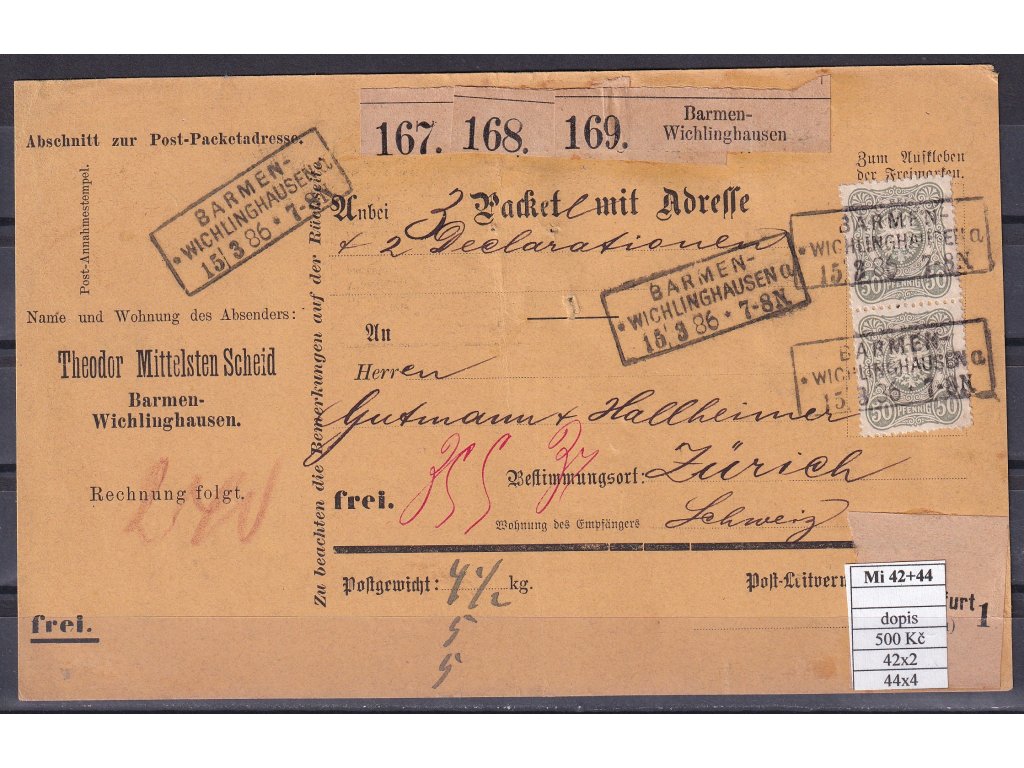 167.
168.
169.
Barmen-
Wichlinghausen
Abschnitt zur Post-Packetadresse.
Post-Annahmestempel.
BARMEN-
* WICHLINGHAUSEN a
15/3 86 * 7-8N
Zu beachten die Bemerkungen auf der Rückseite.
Name und Wohnung des Absenders:
Theodor Mittelsten Scheid
Barmen-
Wichlinghausen.
Rechnung folgt.
frei.
Anbei 3 Packete mit Adresse
& 2 Declarationen
BARMEN-
* WICHLINGHAUSEN a
15/3 86 * 7-8N
An
Herren
Gutmann & Hallheimer
Bestimmungsort: Zürich
frei.
Wohnung des Empfängers
Schweiz
Postgewicht: 4 1/2 kg.
5
5
Zum Aufkleben
der Freimarken.
BARMEN-
* WICHLINGHAUSEN a
15/3 86 7-8N
50 PFENNIG 50
BARMEN-
* WICHLINGHAUSEN a
15/3 86 7-8N
50 PFENNIG 50
furt 1
Mi 42+44
dopis
500 Kč
42x2
44x4